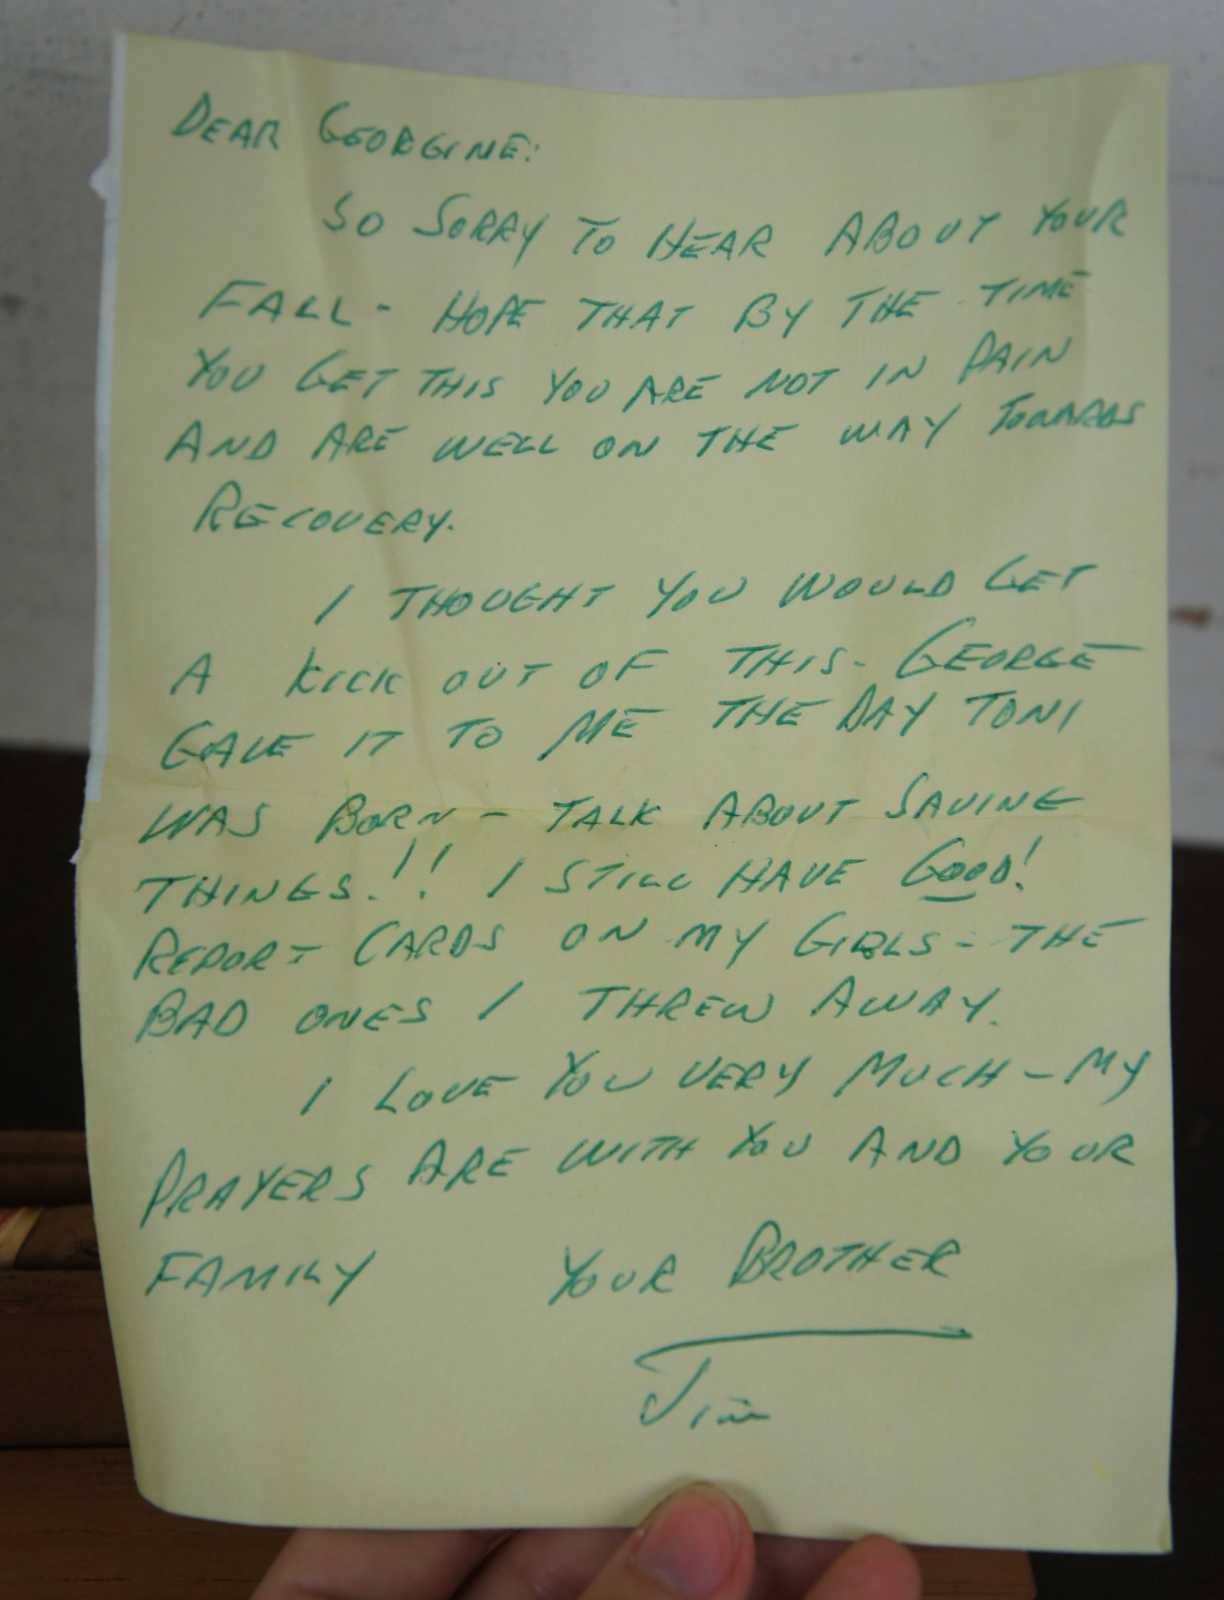 DEAR GEORGINE:
SO SORRY TO HEAR ABOUT YOUR
FALL - HOPE THAT BY THE TIME
YOU GET THIS YOU ARE NOT IN PAIN
AND ARE WELL ON THE WAY TOWARDS
RECOVERY.
I THOUGHT YOU WOULD GET
A KICK OUT OF THIS - GEORGE
GAVE IT TO ME THE DAY TONI
WAS BORN - TALK ABOUT SAVING
THINGS!!! I STILL HAVE GOOD!
REPORT CARDS ON MY GIRLS - THE
BAD ONES I THREW AWAY.
I LOVE YOU VERY MUCH - MY
PRAYERS ARE WITH YOU AND YOUR
FAMILY YOUR BROTHER
Jim